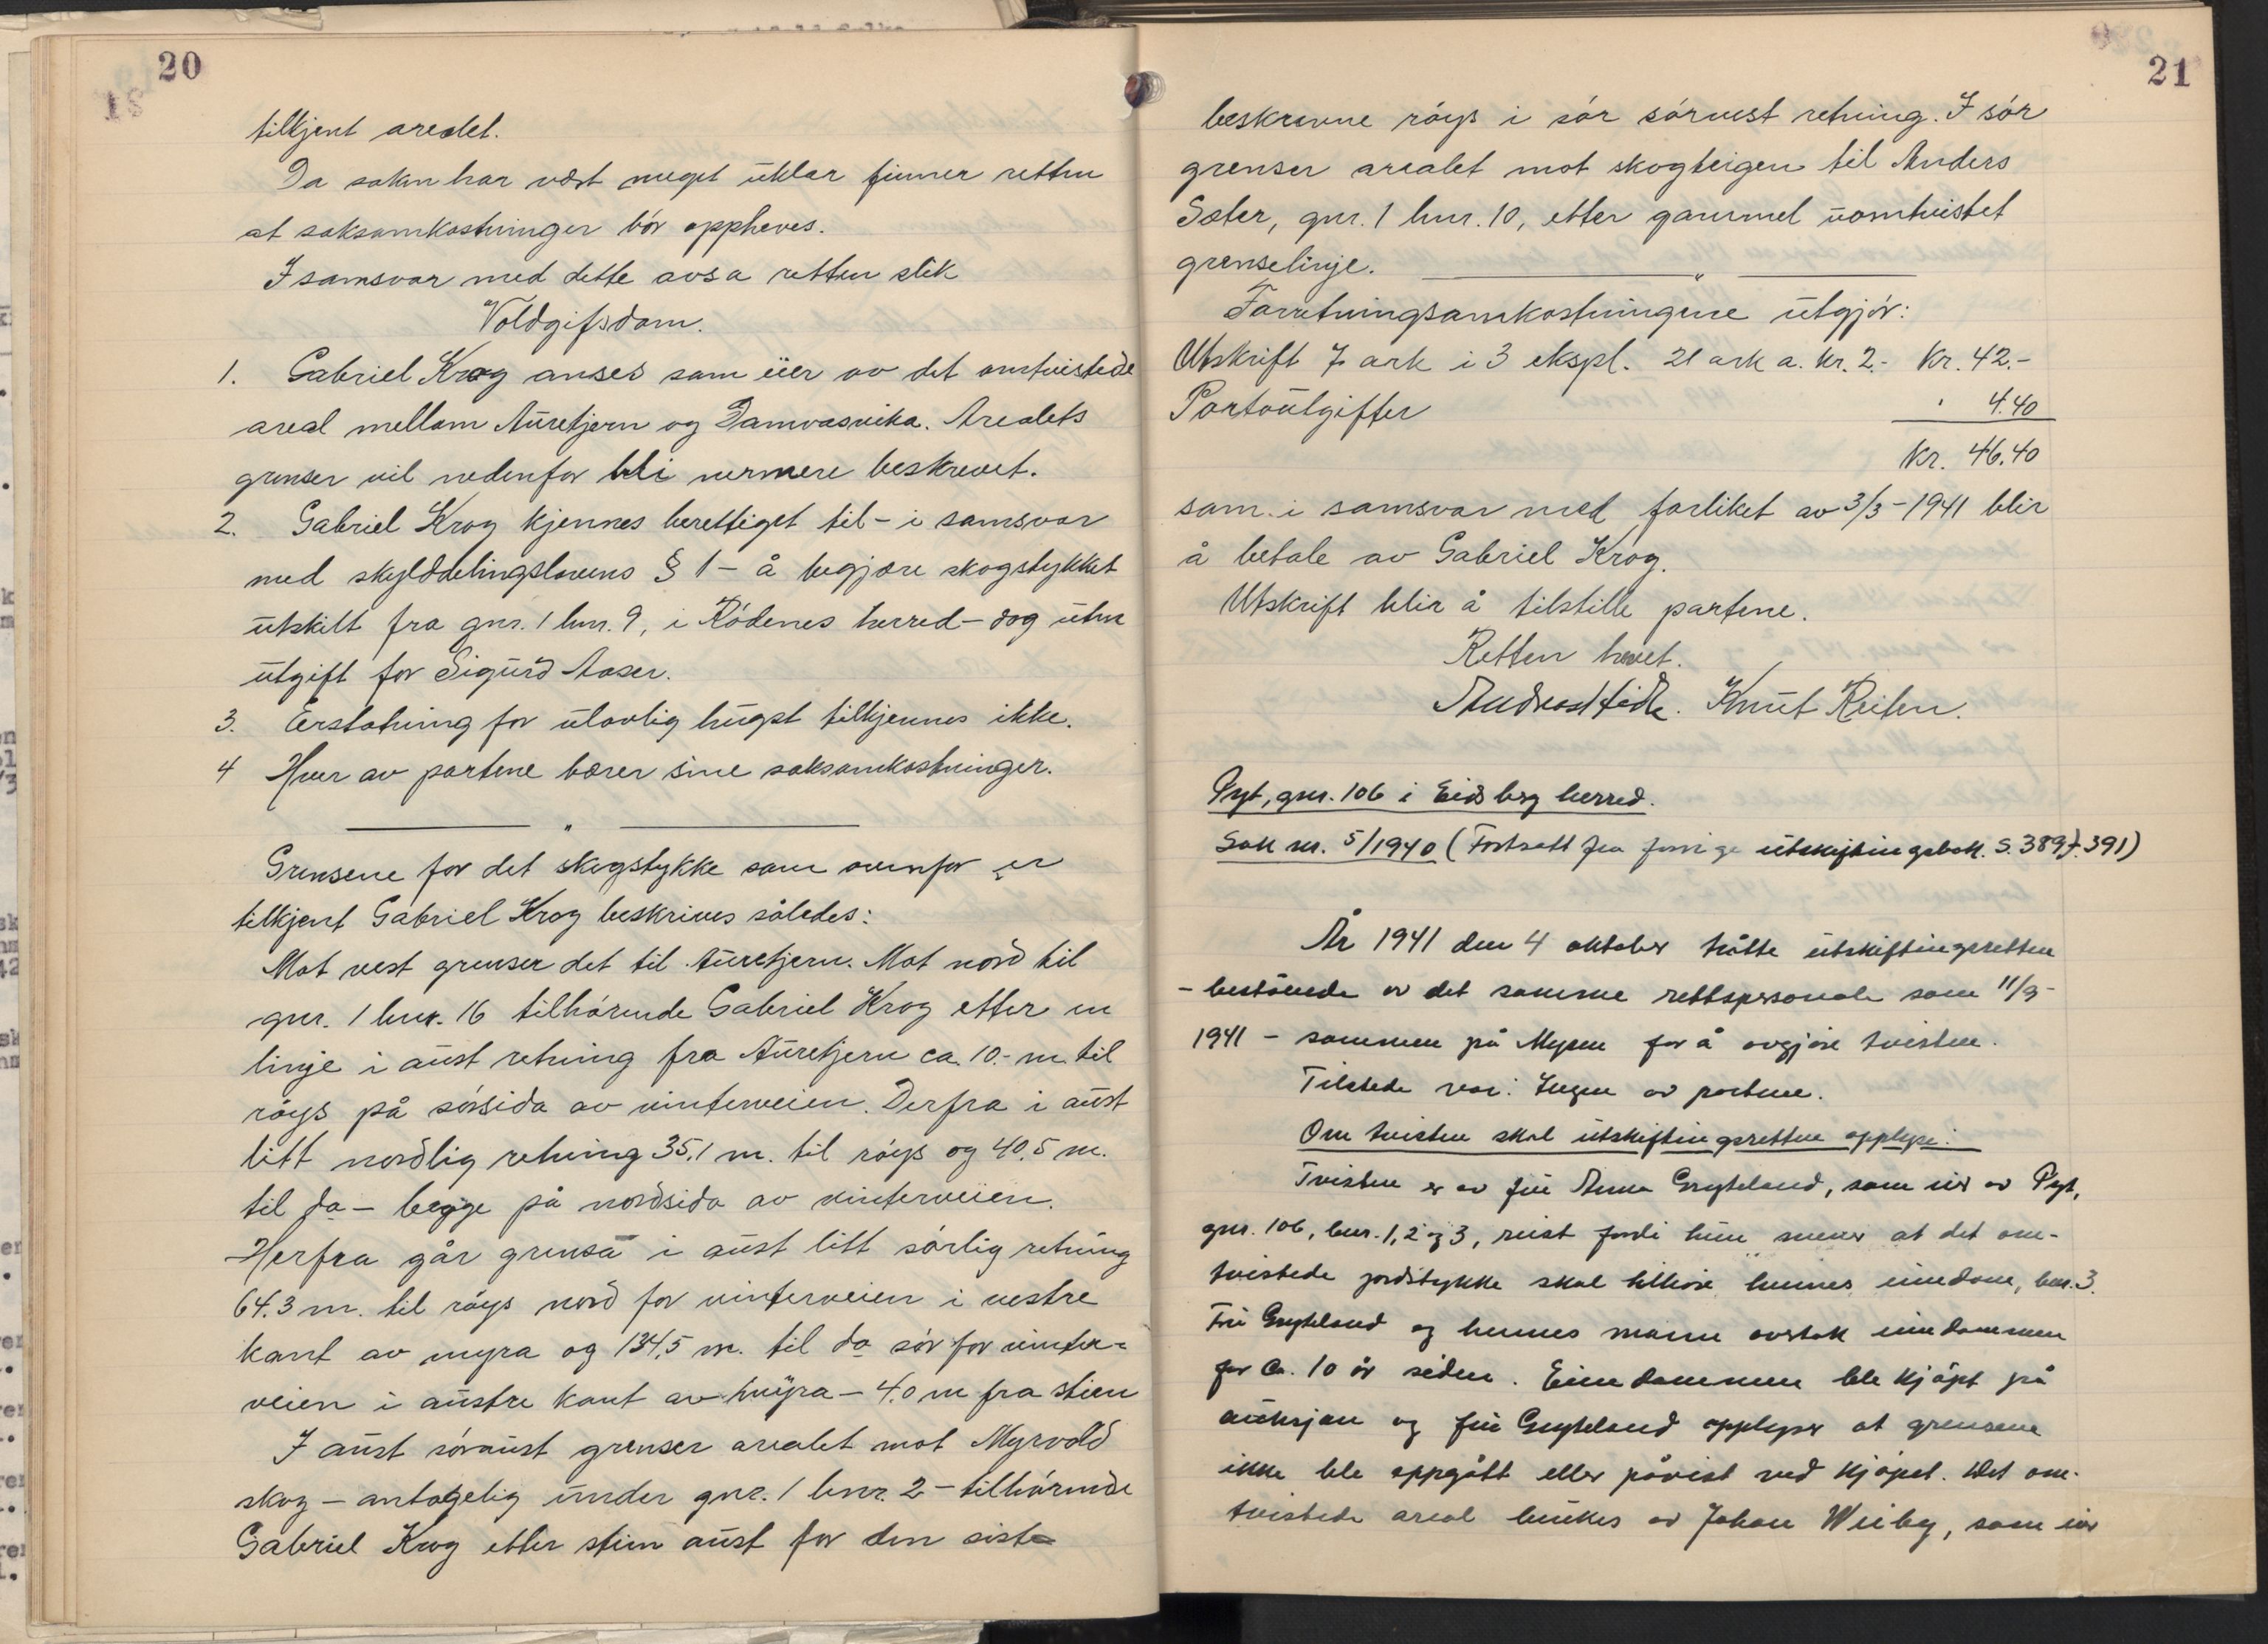 20
tilkjent arealet.
Da saken har vært meget uklar finner retten
at saksomkostninger bör oppheves.
I samsvar med dette avsa retten slik
Voldgifsdom.
1. Gabriel Krog anses som eier av det omtvistede
areal mellom Auretjern og Damvasvika. Arealets
grenser vil nedenfor bli nermere beskrevet.
2. Gabriel Krog kjennes berettiget til - i samsvar
med skylddelingslovens § 1 - å begjære skogstykket
utskilt fra gnr. 1 bnr. 9, i Rödenes herred - dog uten
utgift for Sigurd Aaser.
3. Erstatning for ulovlig hugst tilkjennes ikke.
4 Hver av partene bærer sine saksomkostninger.
"
Grensene for det skogstykke som ovenfor er
tilkjent Gabriel Krog beskrives således:
Mot vest grenser det til Auretjern. Mot nord til
gnr. 1 bnr. 16 tilhörende Gabriel Krog etter en
linje i aust retning fra Auretjern ca. 10.- m. til
röys på sörsida av vinterveien. Derfra i aust
litt nordlig retning 35,1 m. til röys og 40,5 m.
til do - begge på nordsida av vinterveien.
Herfra går grensa i aust litt sörlig retning
64.3 m. til röys nord for vinterveien i vestre
kant av myra og 134,5 m. til do sör for vinter-
veien i austre kant av myra - 4.0 m fra stien
I aust söraust grenser arealet mot Myrvold
skog - antagelig under gnr. 1 bnr. 2 - tilhörende
Gabriel Krog etter stien aust for den siste
21
beskrevne röys i sör sörvest retning. I sör
grenser arealet mot skogteigen til Anders
Sæter, gnr. 1 bnr. 10, etter gammel uomtvistet
grenselinje. "
Forretningsomkostningene utgjör:
Utskrift 7 ark i 3 ekspl. 21 ark a. kr. 2.- Kr. 42.-
Portoutgifter " 4.40
Kr. 46.40
som i samsvar med forliket av 3/3-1941 blir
å betale av Gabriel Krog.
Utskrift blir å tilstille partene.
Retten hevet.
Knut Reiten.
Pyt, gnr. 106 i Eidsberg herred.
Sak nr. 5/1940 (Fortsatt fra forrige utskiftingsbok. S. 389 f. 391)
År 1941 den 4 oktober tråtte utskiftingsretten
- bestående av det samme rettspersonale som 11/9-
1941 - sammen på Mysen for å avgjöre tvisten.
Tilstede var: Ingen av partene.
Om tvisten skal utskiftingsretten opplyse:
Tvisten er av fru Anna Gryteland, som eier av Pyt,
gnr. 106, bnr. 1, 2 og 3, reist fordi hun mener at det om-
tvistede jordstykke skal tilhöre hennes eiendom, bnr. 3.
Fru Gryteland og hennes mann overtok eiendommen
for ca. 10 år siden. Eiendommen ble kjöpt på
auksjon og fru Gryteland opplyser at grensene
ikke ble oppgått eller påvist ved kjöpet. Det om-
tvistede areal brukes av Johan Wiiby, som eier